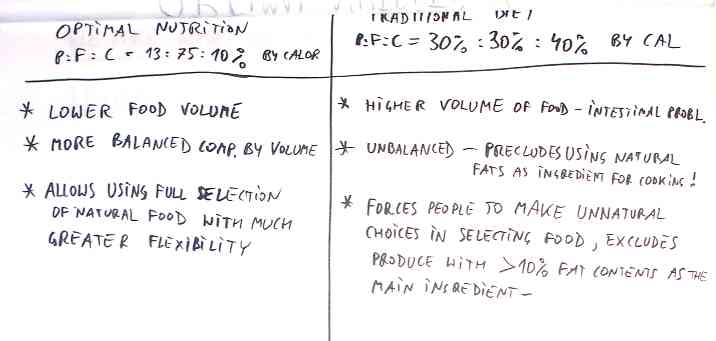 OPTIMAL NUTRITION
P:F:C = 13:75:10% BY CALOR
* LOWER FOOD VOLUME
* MORE BALANCED COMP. BY VOLUME
* ALLOWS USING FULL SELECTION
OF NATURAL FOOD WITH MUCH
GREATER FLEXIBILITY
TRADITIONAL DIET
P:F:C = 30% : 30% : 40% BY CAL
* HIGHER VOLUME OF FOOD - INTESTINAL PROBL.
* UNBALANCED - PRECLUDES USING NATURAL
FATS AS INGREDIENT FOR COOKING!
* FORCES PEOPLE TO MAKE UNNATURAL
CHOICES IN SELECTING FOOD, EXCLUDES
PRODUCE WITH >10% FAT CONTENTS AS THE
MAIN INGREDIENT -